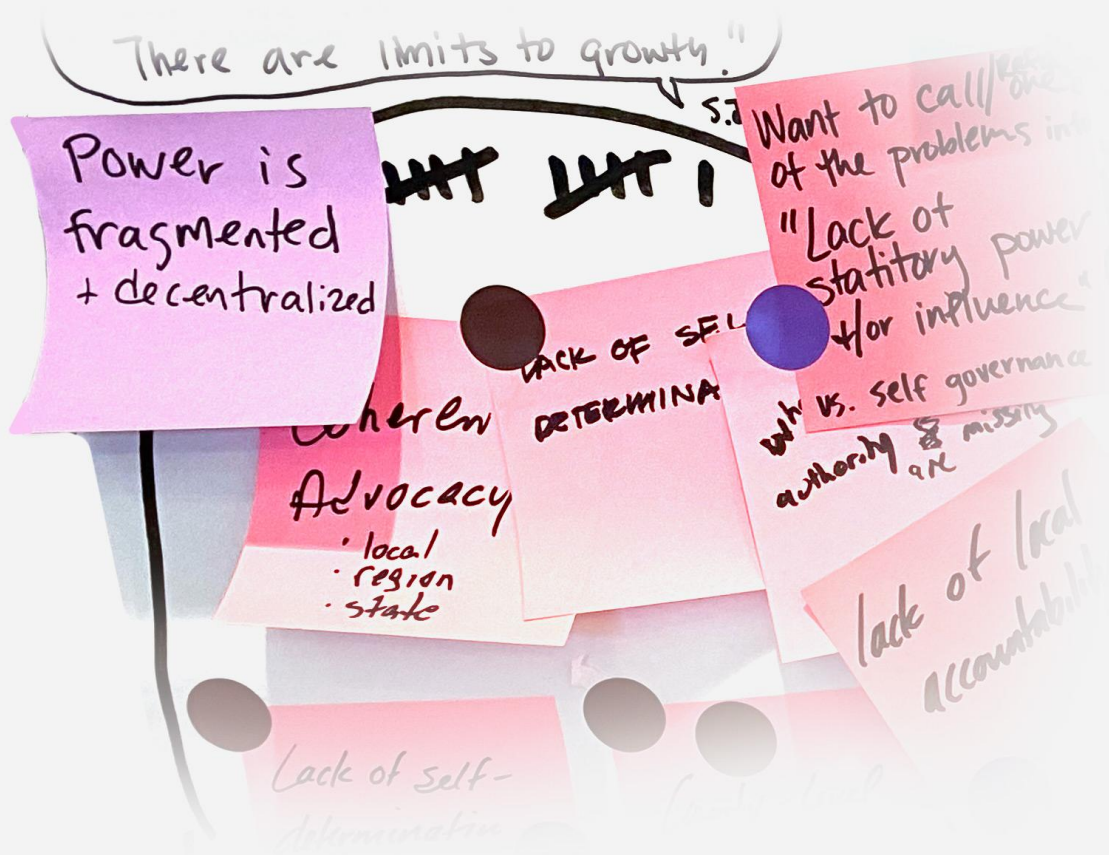 There are limits to growth."
Power is
fragmented
+ decentralized
Want to call/
of the problems
"Lack of
statitory power
+/or influence"
vs. self governance
Coheren
Advocacy
· local
· region
· state
LACK OF SEL
DETERMINA
authority
are missing
lack of local
accountabili
Lack of self-
determination